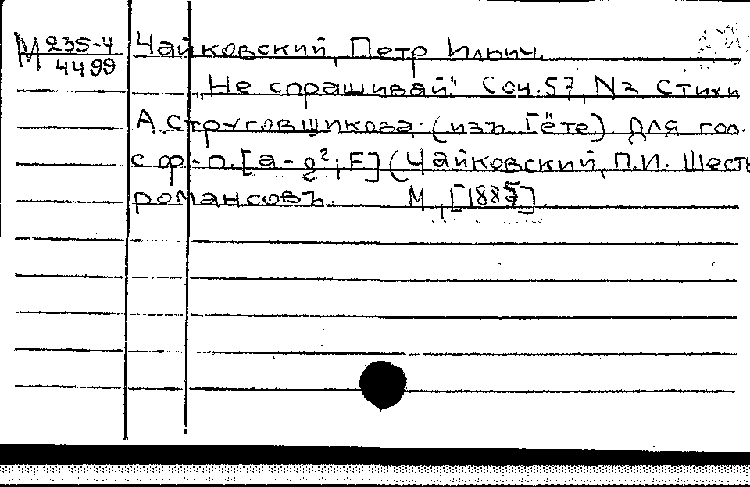 М 235-4
4499
Чайковский, Петр Ильич.
„Не спрашивай". Соч. 57, N2 Стихи
А. Струговщикова. (изъ Гёте) Для гол.
с ф-п. [a-g², F] (Чайковский, П.И. Шесть
романсовъ. М., [1885]